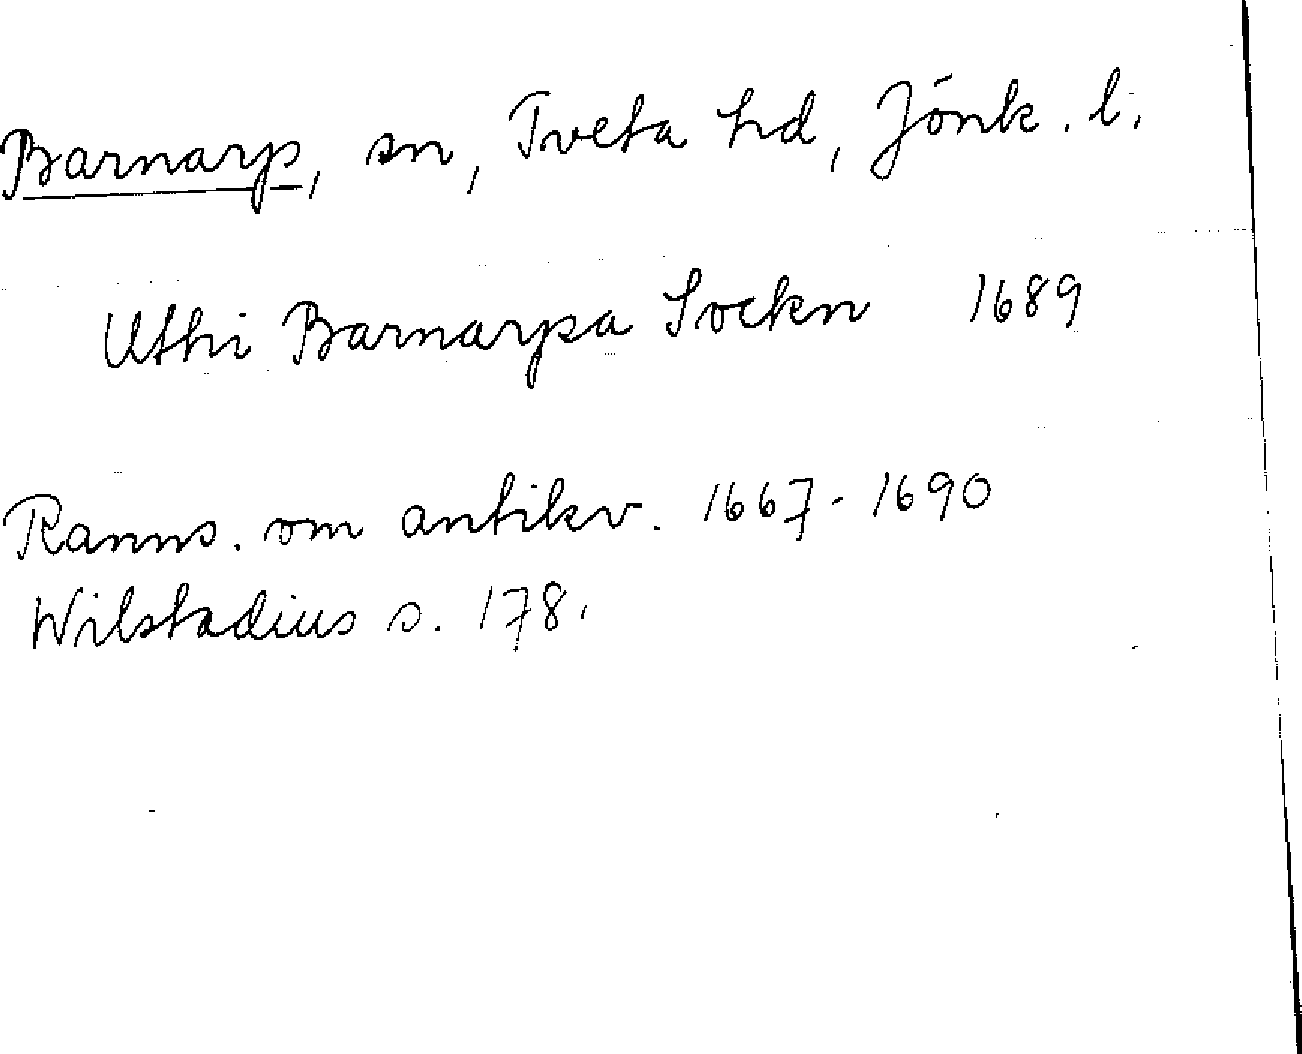 Barnarp, sn, Tveta hd, Jönk. l.
Uthi Barnarpa Sockn 1689
Ranns. om antikv. 1667-1690
Wilstadius s. 178.